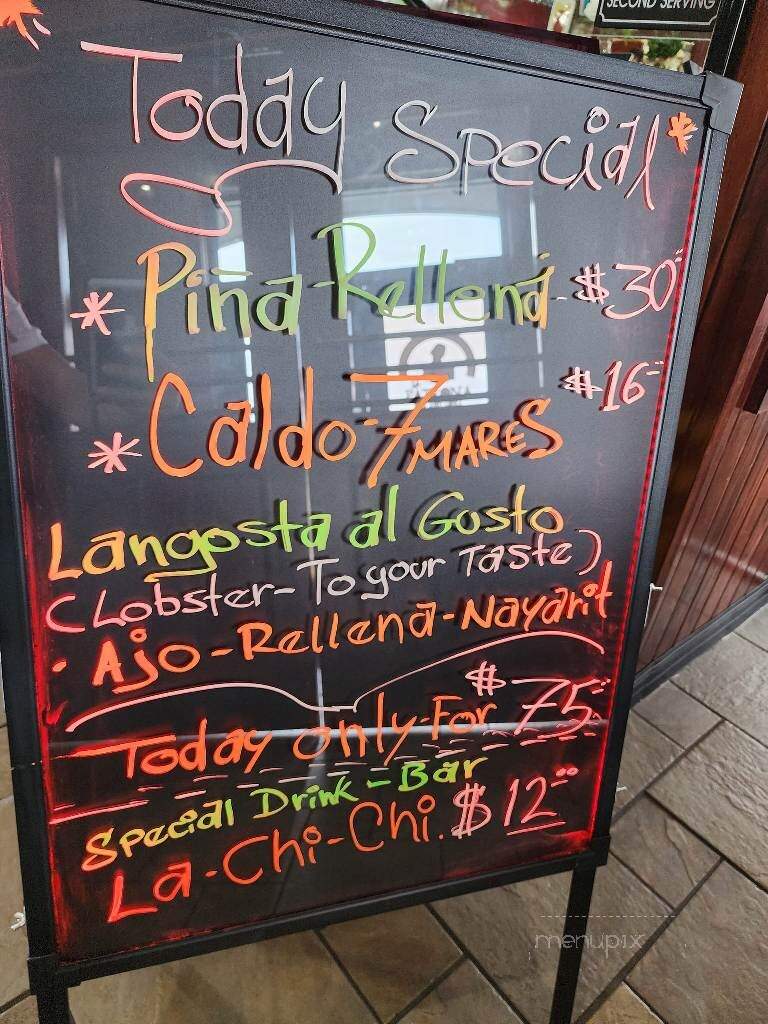 SECOND SERVING
Today Special
* Piña-Rellena-$30
* Caldo-7 MARES $16
Langosta al Gosto
(Lobster-To your Taste)
• Ajo-Rellena-Nayarit
Today only-For $75
Special Drink-Bar
La-Chi-Chi. $12.00
menupix